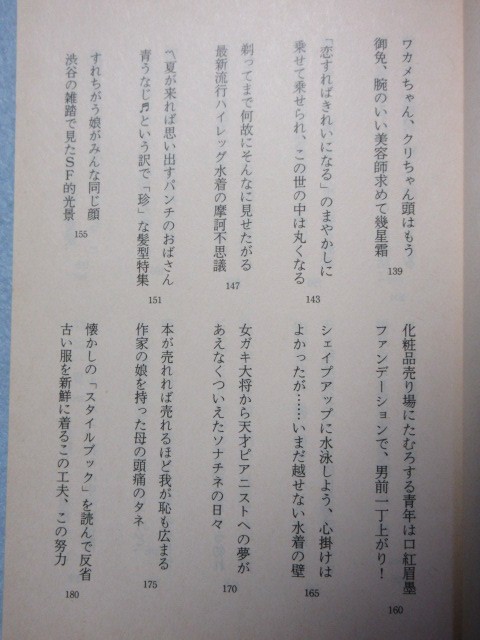 ワカメちゃん、クリちゃん頭はもう
御免、腕のいい美容師求めて幾星霜
139
「恋すればきれいになる」のまやかしに
乗せて乗せられ、この世の中は丸くなる
143
剃ってまで何故にそんなに見せたがる
最新流行ハイレッグ水着の摩訶不思議
147
〽夏が来れば思い出すパンチのおばさん
青うなじ♬という訳で「珍」な髪型特集
151
すれちがう娘がみんな同じ顔
渋谷の雑踏で見たSF的光景
155
化粧品売り場にたむろする青年は口紅眉墨
ファンデーションで、男前一丁上がり!
160
シェイプアップに水泳しよう、心掛けは
よかったが……いまだ越せない水着の壁
165
女ガキ大将から天才ピアニストへの夢が
あえなくついえたソナチネの日々
170
本が売れれば売れるほど我が恥も広まる
作家の娘を持った母の頭痛のタネ
175
懐かしの「スタイルブック」を読んで反省
古い服を新鮮に着るこの工夫、この努力
180